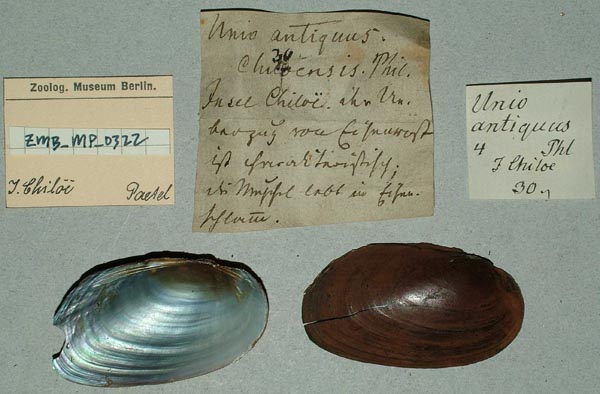 Zoolog. Museum Berlin.
ZMB_MP_0322
I. Chiloë
Paetel
Unio antiquus.
30
Chiloënsis. Phil.
Insel Chiloë. ihr Ue-
berzug von Eisenrost
ist charakteristisch;
die Muschel lebt in Eisen-
schlamm.
Unio
antiquus
4 Phl
I Chiloe
30